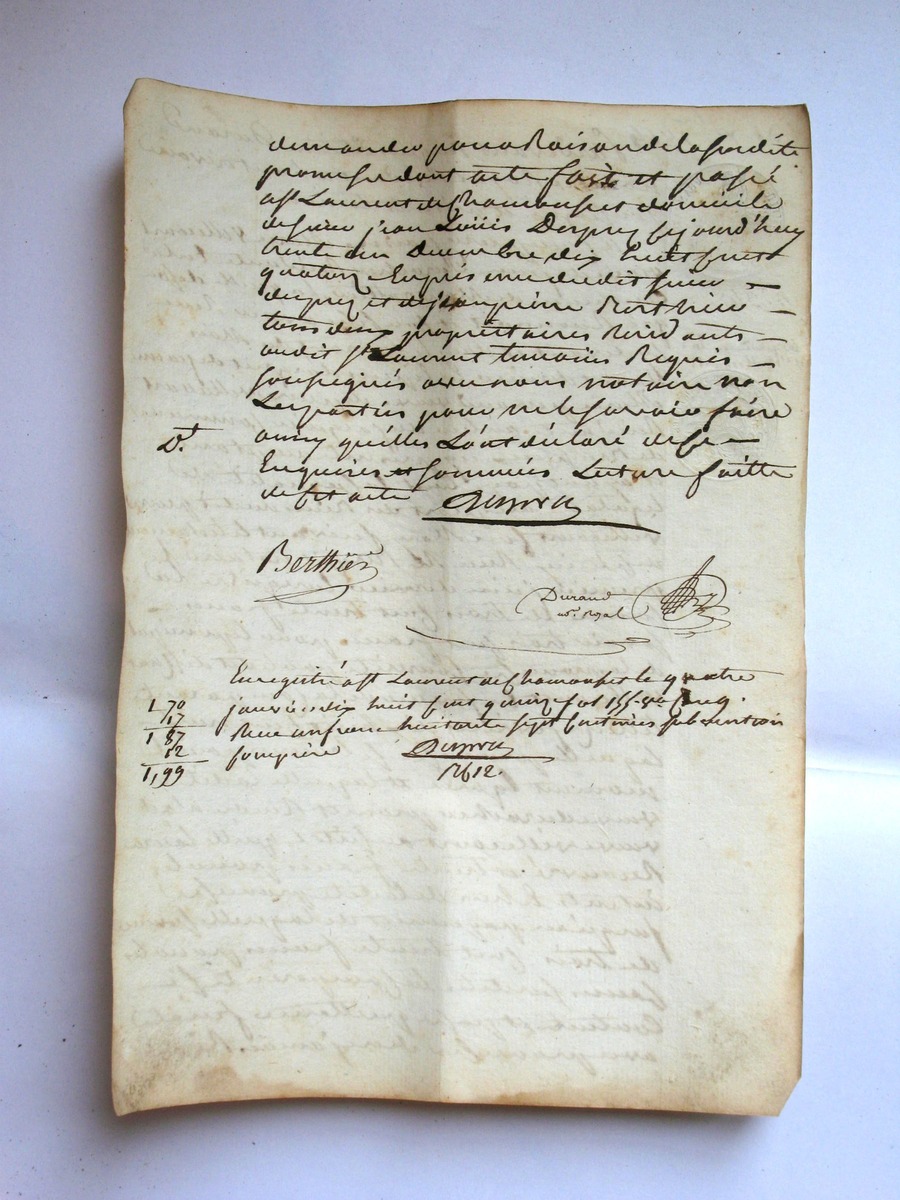 demander pour Raison de la susdite
promesse dont acte fait et passé
a St Laurent de Chamousset domicile
de sieur jean Loüis Desprez cejourd'huy
trente un Decembre dix huit cent
quatorze En présence dudit sieur
desprez et de jeanpierre Berthier
tous deux propriétaires Résidants
audit St Laurent temoins Requis
soussignés avec nous notaire non
Les parties pour ne le sçavoir faire
ainsy quelles L'ont déclaré de ce
Enquises et sommées Lecture faitte
de cet acte
D.t
Berthier
Durand
no.re Royal
Enregistré a St Laurent de Chamousset le quatre
janvier dix huit cent quinze fol 155
Recu un franc huitante sept centimes subvention
comprise
1 70
17
1 87
12
1,99